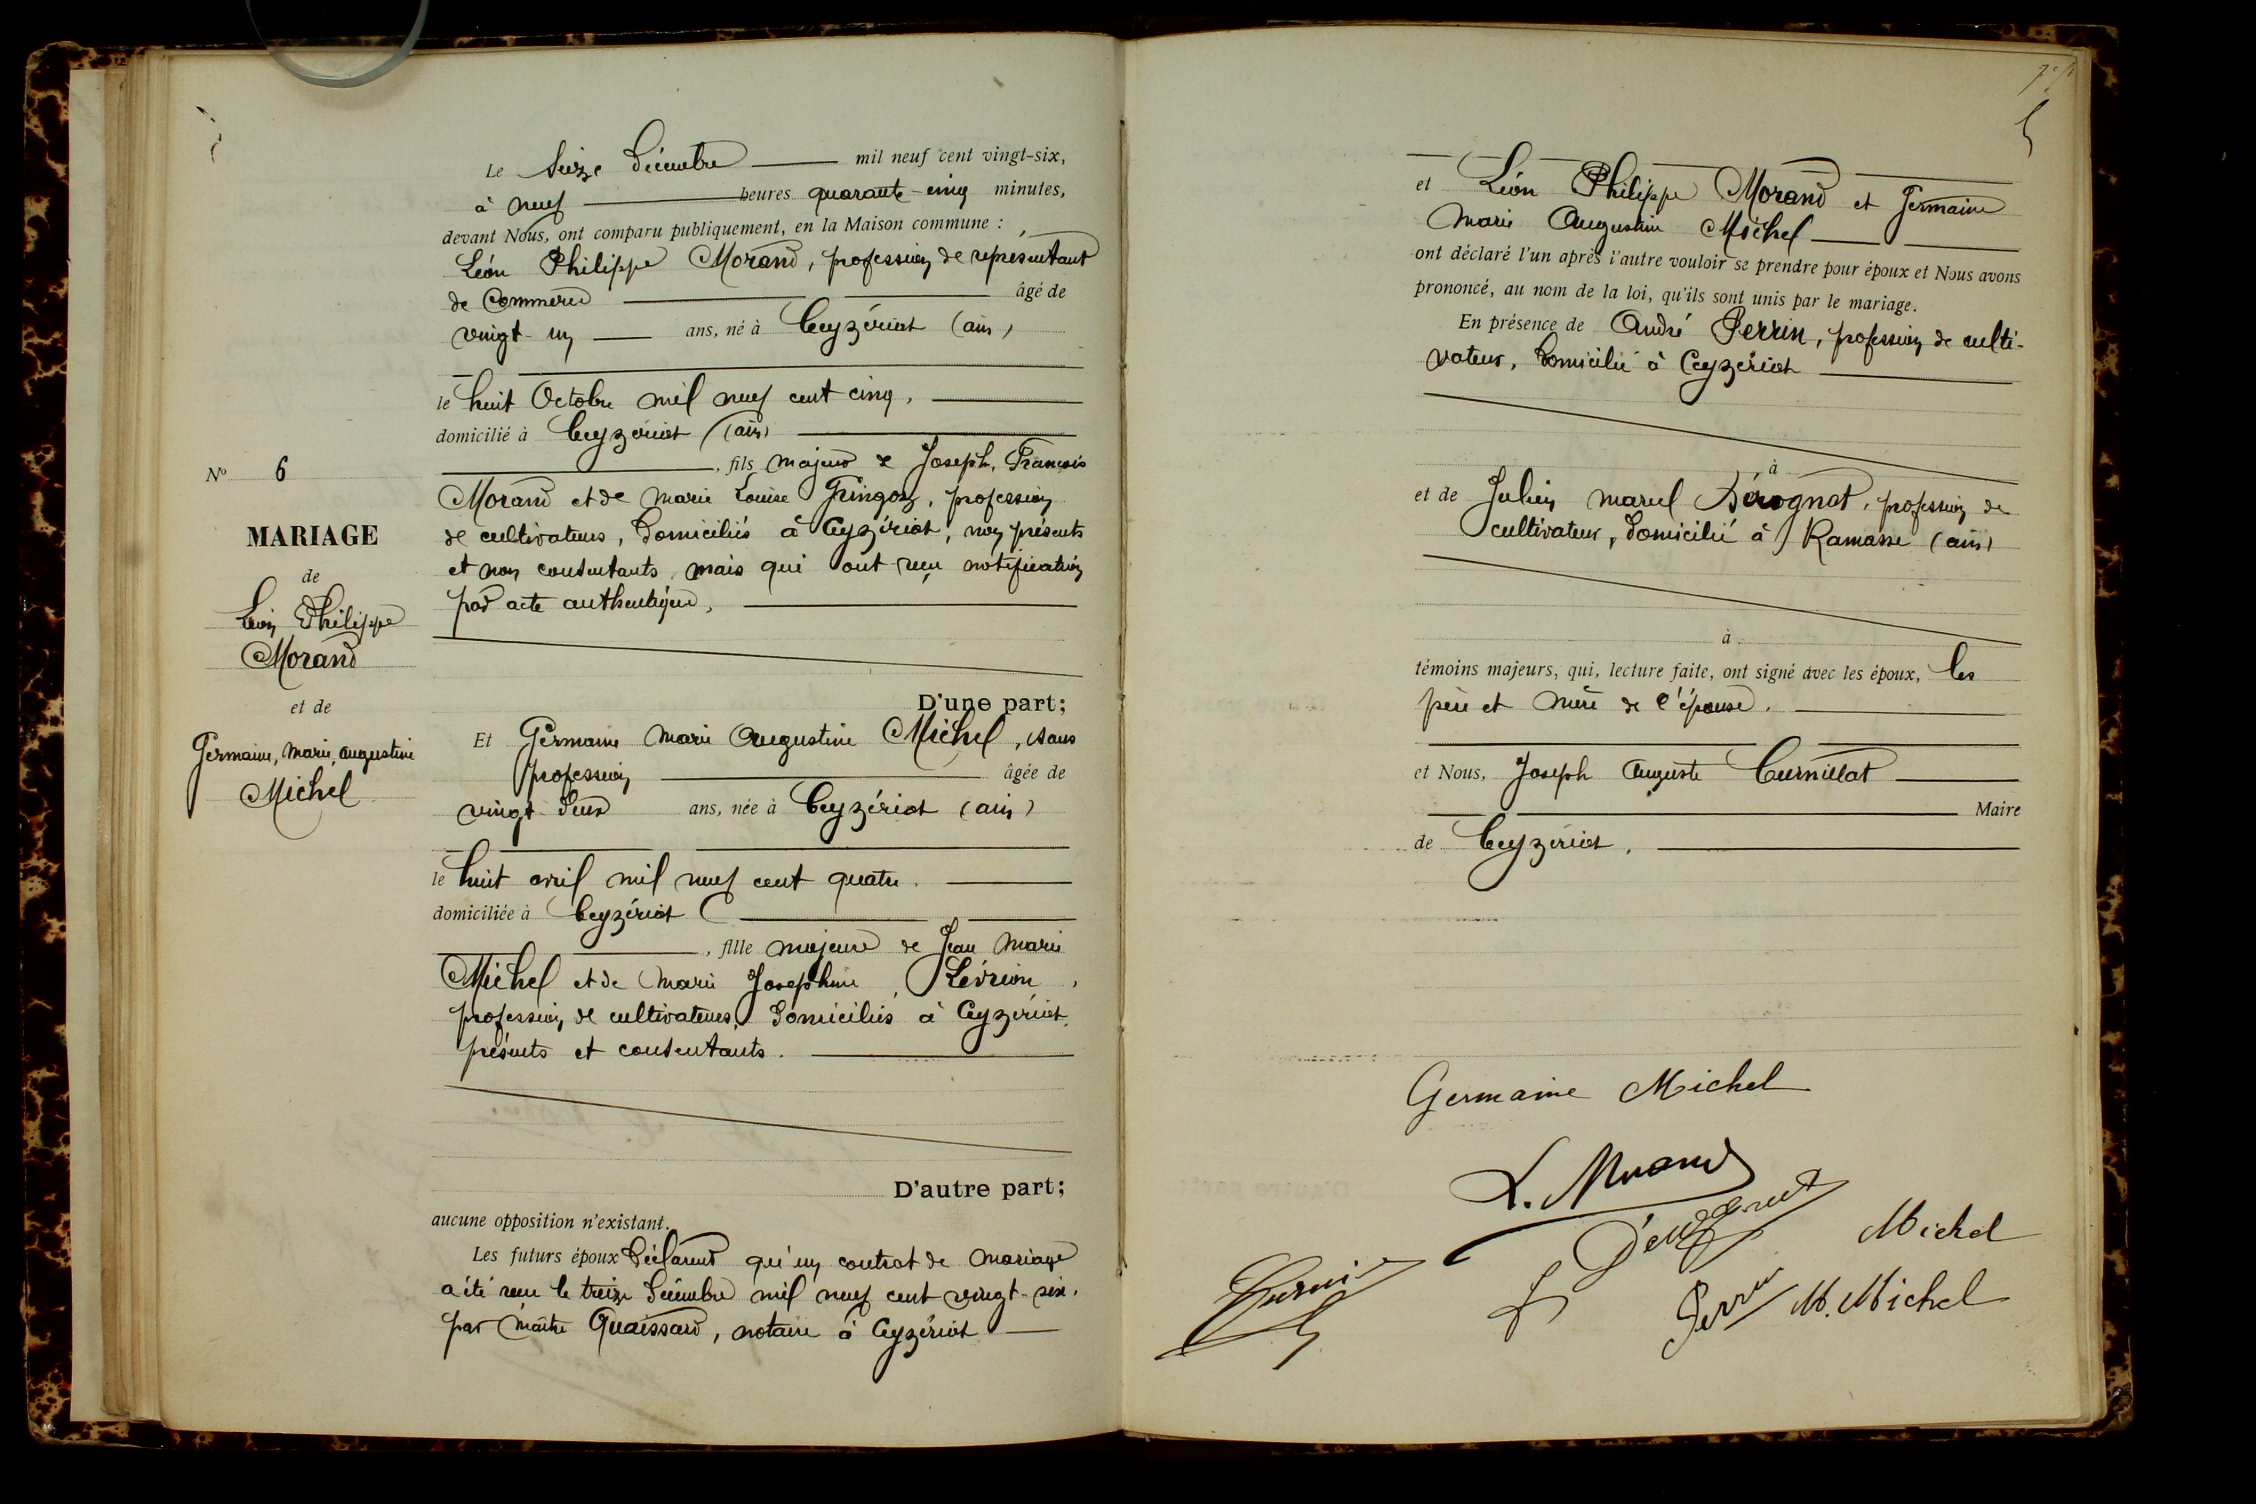 Le Seize Décembre mil neuf cent vingt-six,
à neuf heures quarante-cinq minutes,
devant Nous, ont comparu publiquement, en la Maison commune :
Léon Philippe Morand, profession de représentant
de Commerce âgé de
vingt-un ans, né à Ceyzériat (ain)
le huit Octobre mil neuf cent cinq,
domicilié à Ceyzériat (ain)
, fils majeur de Joseph, François
Morand et de Marie Louise Gringoz, profession
de cultivateurs, domiciliés à Ceyzériat, non présents
et non consentants, mais qui ont reçu notification
par acte authentique,
D'une part;
Et Germaine Marie Augustine Michel, sans
profession âgée de
vingt-deux ans, née à Ceyzériat (ain)
le huit avril mil neuf cent quatre.
domiciliée à Ceyzériat
, fille majeure de Jean Marie
Michel et de Marie Josephine Lévrion,
profession de cultivateurs, domiciliés à Ceyzériat,
présents et consentants.
D'autre part;
aucune opposition n'existant.
Les futurs époux déclarent qu'un contrat de mariage
a été reçu le treize Décembre mil neuf cent vingt-six,
par Maître Quaissard, notaire à Ceyzériat
No 6
MARIAGE
de
Léon Philippe
Morand
et de
Germaine, Marie, Augustine
Michel
et Léon Philippe Morand et Germaine
Marie Augustine Michel
ont déclaré l'un après l'autre vouloir se prendre pour époux et Nous avons
prononcé, au nom de la loi, qu'ils sont unis par le mariage.
En présence de André Perrin, profession de culti-
vateur, domicilié à Ceyzériat
à
et de Julien Marcel Dérognat, profession de
cultivateur, domicilié à Ramasse (ain)
à
témoins majeurs, qui, lecture faite, ont signé avec les époux, les
père et mère de l'épouse.
et Nous, Joseph Auguste Curnillat
Maire
de Ceyzériat.
Germaine Michel
L. Morand
Michel
M. Michel